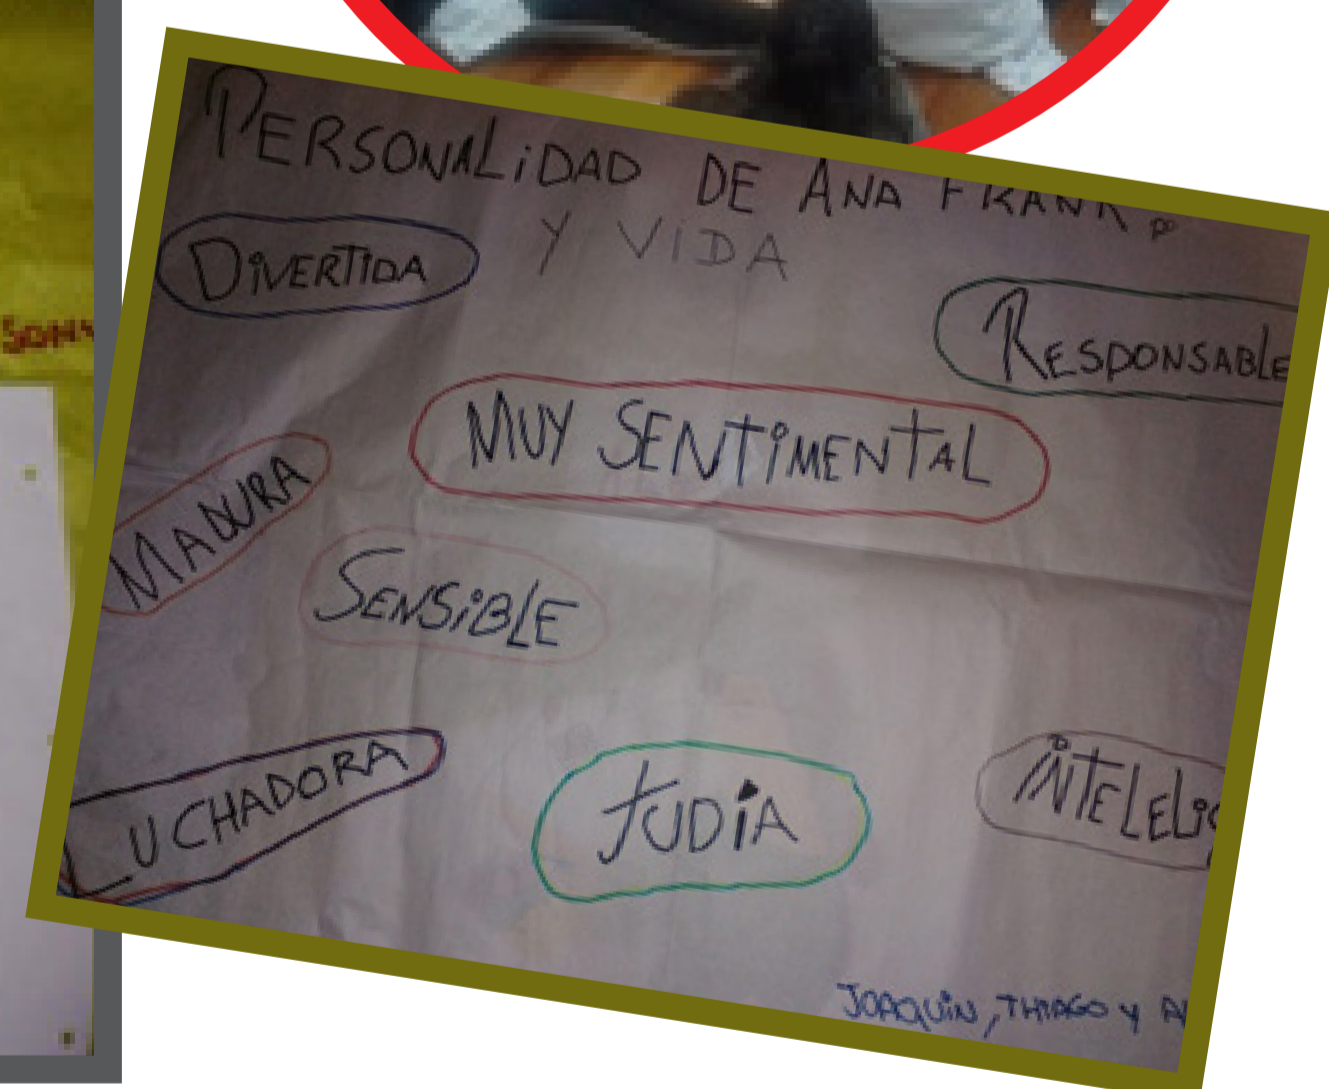 PERSONALIDAD DE ANA FRANK
Y VIDA
DIVERTIDA
RESPONSABLE
MUY SENTIMENTAL
MADURA
SENSIBLE
LUCHADORA
JUDÍA
JOAQUÍN, THIAGO Y